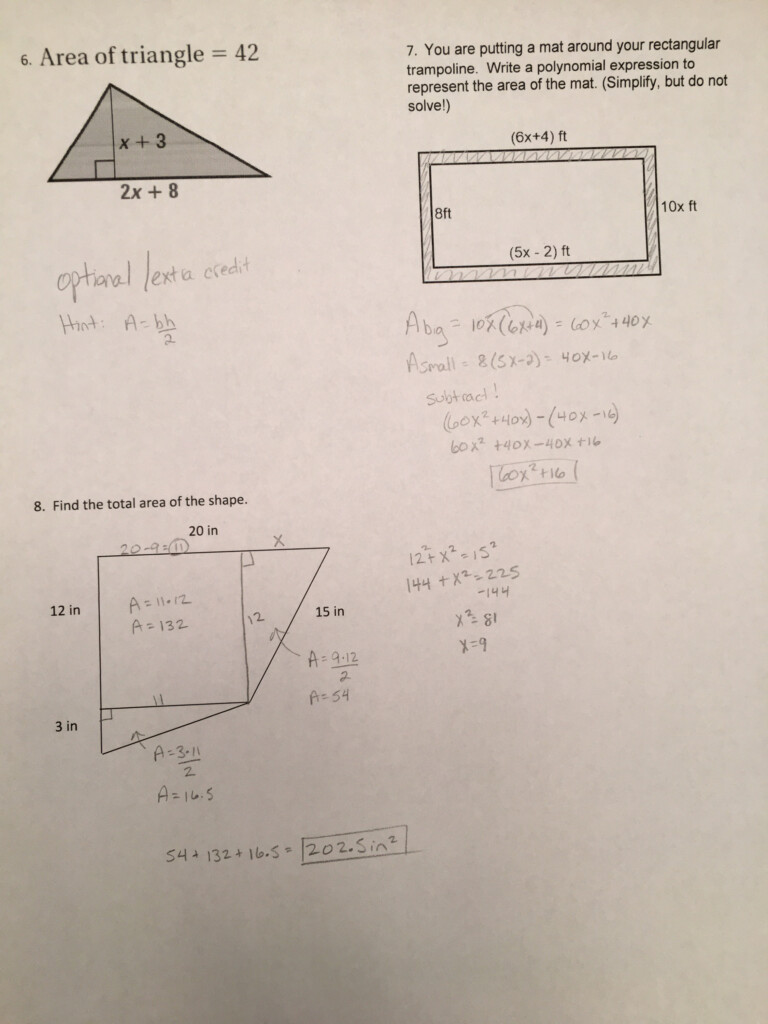 6. Area of triangle = 42
x + 3
2x + 8
optional /extra credit
Hint: A = bh/2
7. You are putting a mat around your rectangular
trampoline. Write a polynomial expression to
represent the area of the mat. (Simplify, but do not
solve!)
(6x+4) ft
8ft
10x ft
(5x - 2) ft
A big = 10x(6x+4) = 60x²+40x
A small = 8(5x-2) = 40x-16
Subtract!
(60x²+40x)-(40x-16)
60x² +40x-40x+16
60x²+16
8. Find the total area of the shape.
20 in
20-9=11
x
12 in
A = 11·12
A = 132
12
15 in
A = 9·12/2
A = 54
11
3 in
A = 3·11/2
A = 16.5
12²+x²=15²
144 + x² = 225
-144
x² = 81
x=9
54 + 132 + 16.5 = 202.5 in²